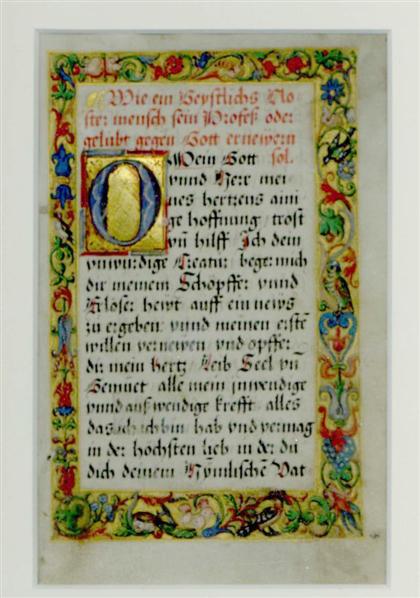 Wie ein Geystlichs Clo-
ster mensch sein Profeß oder
gelubt gegen Gott ernewern
O Mein Gott sol.
vnnd Herr mei-
nes hertzens aini
ge hoffnung, trost
vn̄ hilff Ich dein
vnwurdige Creatur beger mich
dir meinem Schöpffer vnnd
heut auff ein news
zu ergeben vnnd meinen erstē
willen vernewen vnd opffer
dir mein hertz Leib Seel vn̄
Gemüet alle mein jnwendige
vnnd auswendige krefft alles
das ich bin hab vnd vermag
in der hochsten lieb in der dü
dich deinem Hymlischē Vat-